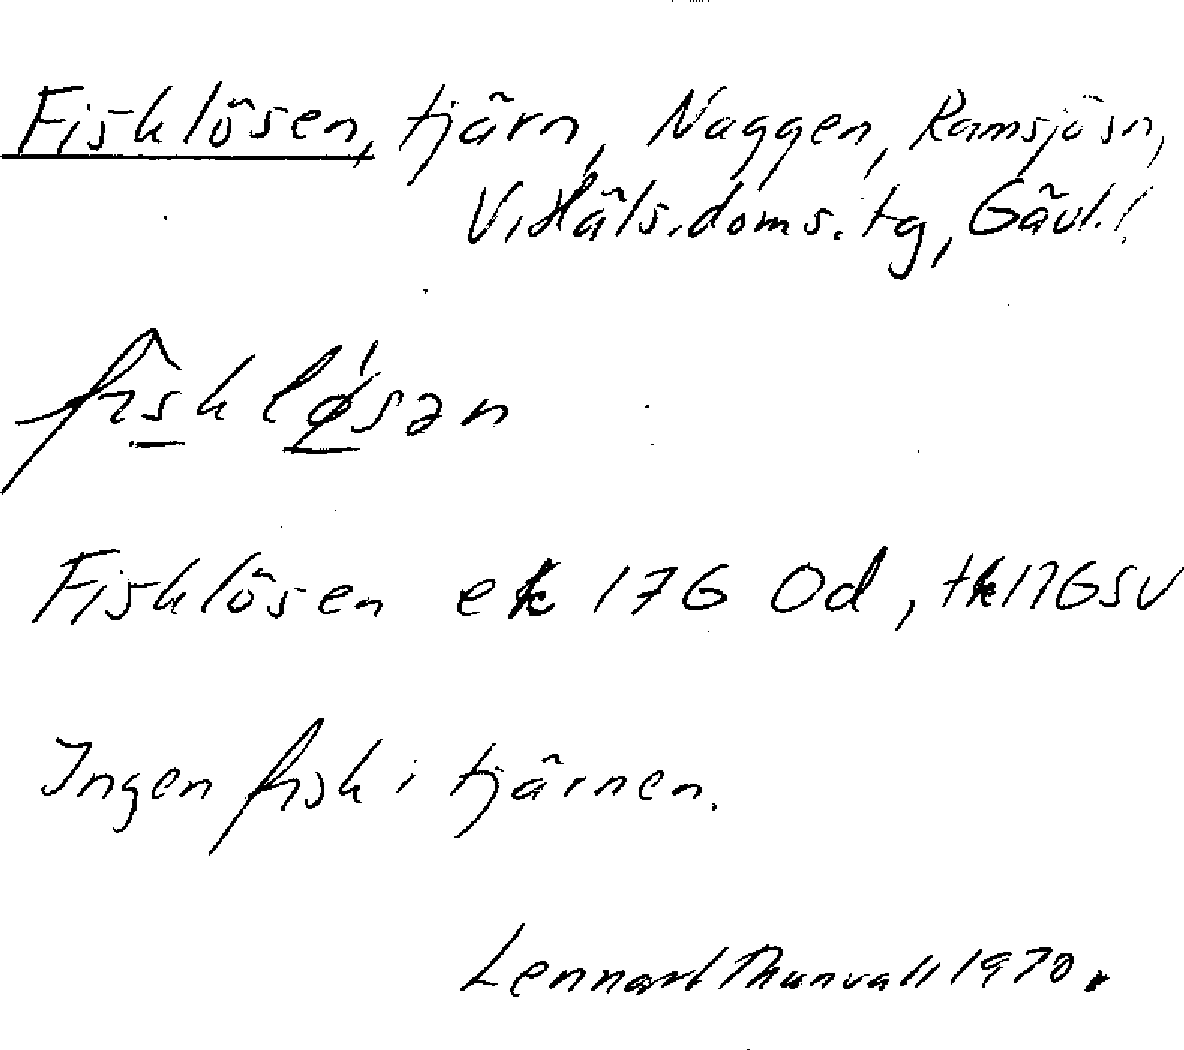 Fisklösen, tjärn, Naggen, Ramsjösn,
V. Häls. doms. tg, Gävl. l.
fisklǿsən
Fisklösen ek 17G Od, tk17GSV
Ingen fisk i tjärnen.
Lennart Thunvall 1970.